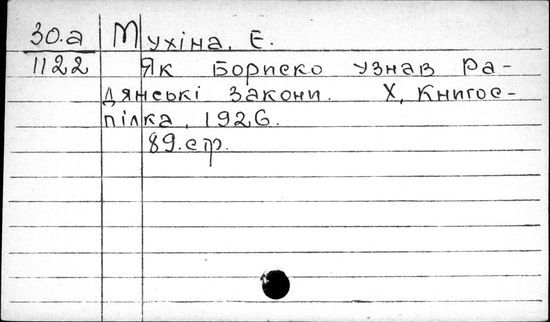 30.а Мухіна, Е.
1122 Як Бориско узнав Ра-
дянські закони. Х, Книгос-
пілка, 1926.
89.стр.